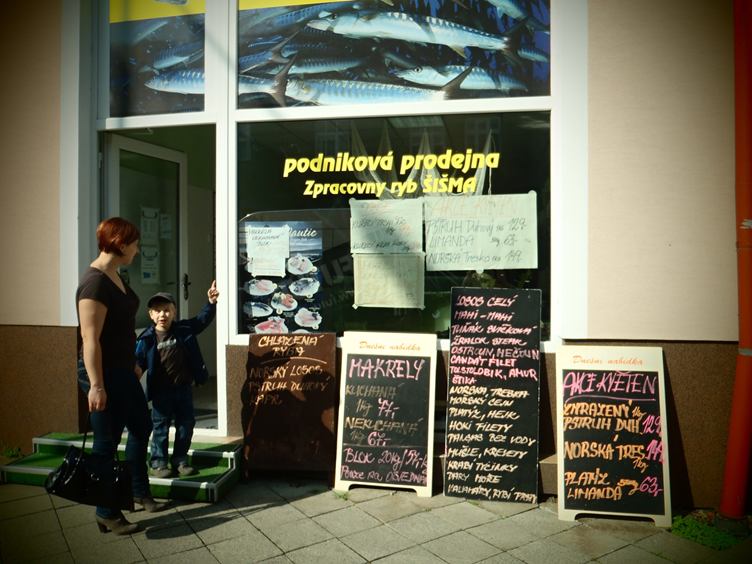 podniková prodejna
Zpracovny ryb ŠIŠMA
AKCE KVĚTEN
PSTRUH Duhový 129,-
LIMANDA 63,-
NORSKÁ Treska 149,-
CHLAZENÁ
RYBA
NORSKÝ LOSOS
PSTRUH DUHOVÝ
KAPR
Dnešní nabídka
MAKRELY
KUCHANÁ
1kg 77,-
NEKUCHANÁ
1kg 67,-
BLOK 20kg
LOSOS CELÝ
MAHI-MAHI
TUŇÁK SVÍČKOVÁ
ŽRALOK STEAK
OSTROUN, MEČOUN
CANDÁT FILET
TOLSTOLOBIK, AMUR
ŠTIKA
NORSKÁ TRESKA
MOŘSKÝ ČERT
PLATÝZ, HEJK
HOKI FILETY
PANGAS BEZ VODY
MUŠLE, KREVETY
KRABÍ TYČINKY
DARY MOŘE
KALAMÁRY, RYBÍ PRSTY
Dnešní nabídka
AKCE KVĚTEN
ZMRAŽENÝ 1kg
PSTRUH DUH. 129,-
NORSKÁ TRES 149,-
1kg
PLATÝZ
LIMANDA 63,-